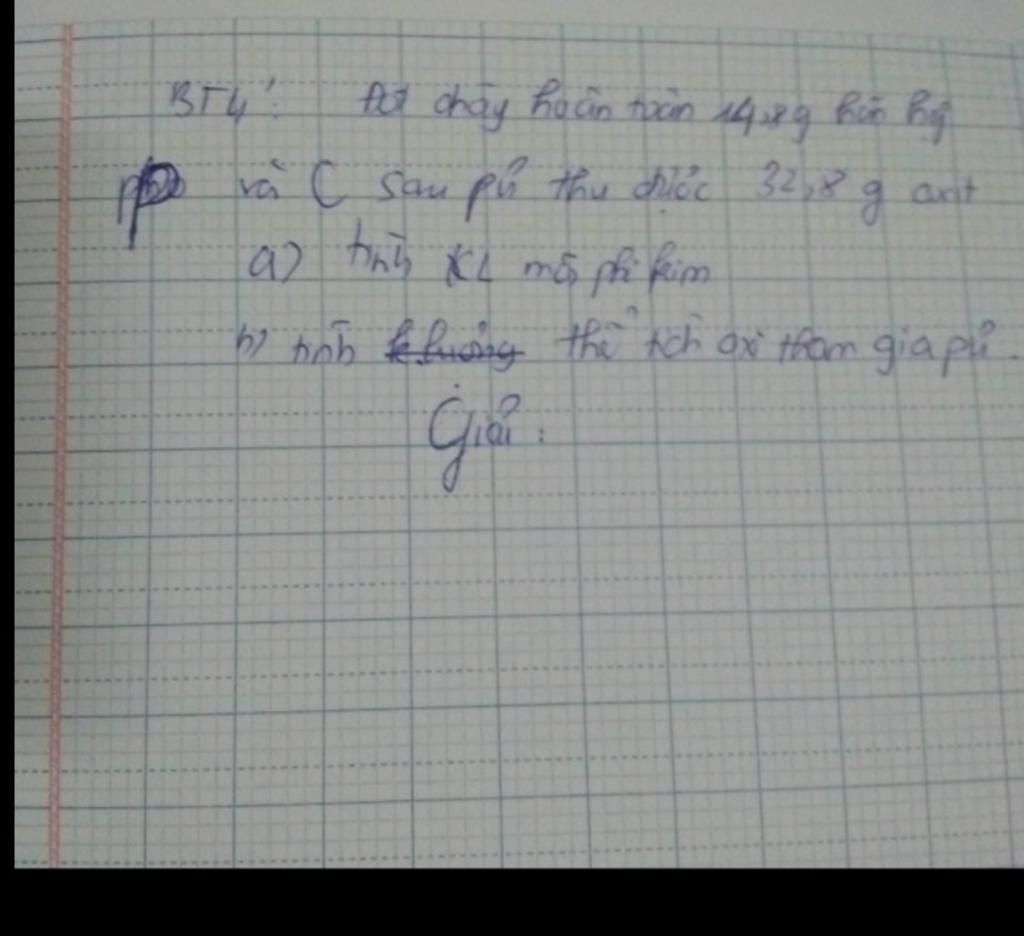 BT4: Đốt cháy hoàn toàn 14,8g hỗn hợp
P và C sau pứ thu được 32,8 g oxit
a) tính KL mỗi phi kim
b) tính thể tích oxi tham gia pứ.
Giải: